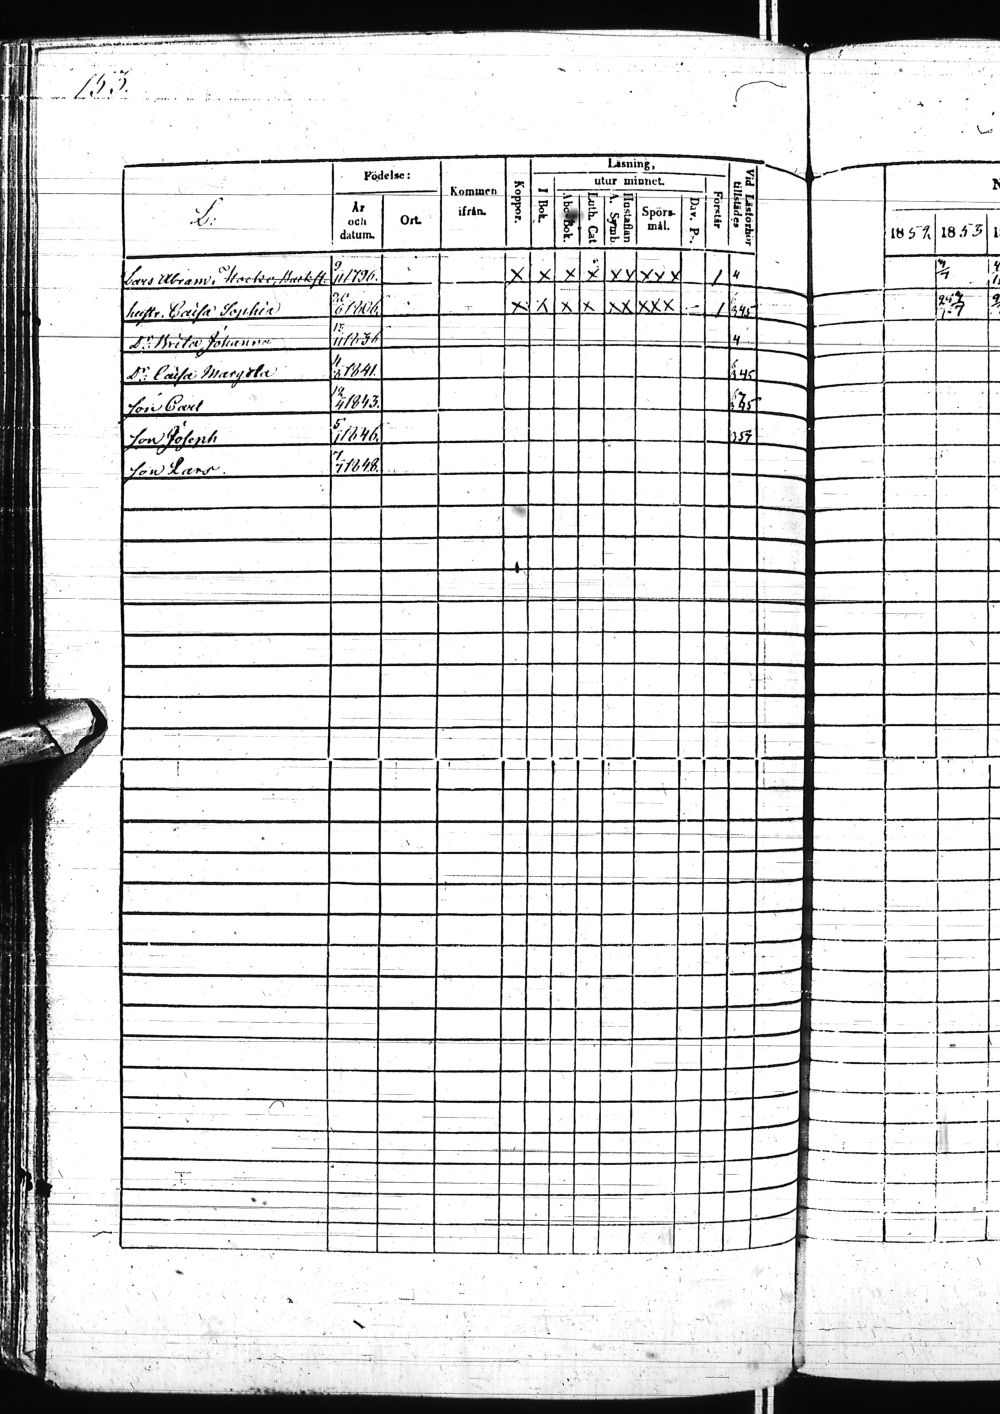 153.
L:
Födelse:
År och datum.
Ort.
Kommen ifrån.
Koppor.
Läsning,
I Bok.
utur minnet.
Abc-Bok.
Luth. Cat
Hustaflan A. Symb.
Spörsmål.
Dav. Ps.
Förstår
Vid Läsförhör tillstädes
1852. 1853
Lars Abram. 9/11 1796. X X X X XX XXX 1 4
hustr. Caisa Sophia 20/6 1806. X X X X XX XXX - 1 6/3 45
Dr. Brita Johanna 4
Dr. Caisa Margeta 4/3 1841. 6/3 45
son Carl 12/4 1843.
son Joseph 5/1 1846.
son Lars. 7/7 1848.